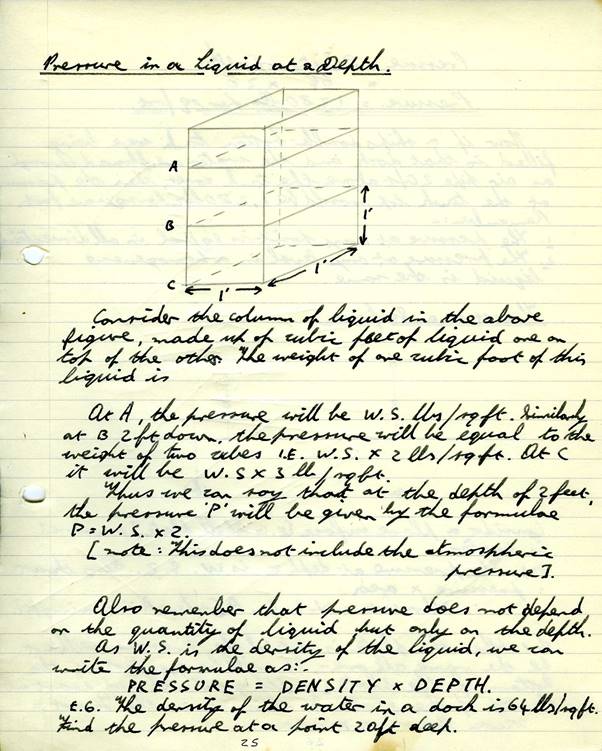 Pressure in a Liquid at a Depth.
A
B
1'
C
1'
1'
Consider the column of liquid in the above
figure, made up of cubic feet of liquid one on
top of the other. The weight of one cubic foot of this
liquid is
At A, the pressure will be W.S. lbs/sq ft. Similarly
at B 2 ft down, the pressure will be equal to the
weight of two cubes I.E. W.S. x 2 lbs/sq ft. At C
it will be W.S x 3 lb/sq ft.
Thus we can say that at the depth of 2 feet,
the pressure 'P' will be given by the formulae
P = W.S. x 2.
[note: This does not include the atmospheric
pressure].
Also remember that pressure does not depend
on the quantity of liquid but only on the depth.
As W.S. is the density of the liquid, we can
write the formulae as:-
PRESSURE = DENSITY x DEPTH.
E.G. The density of the water in a dock is 64 lbs/sq ft.
Find the pressure at a point 20ft deep.
25